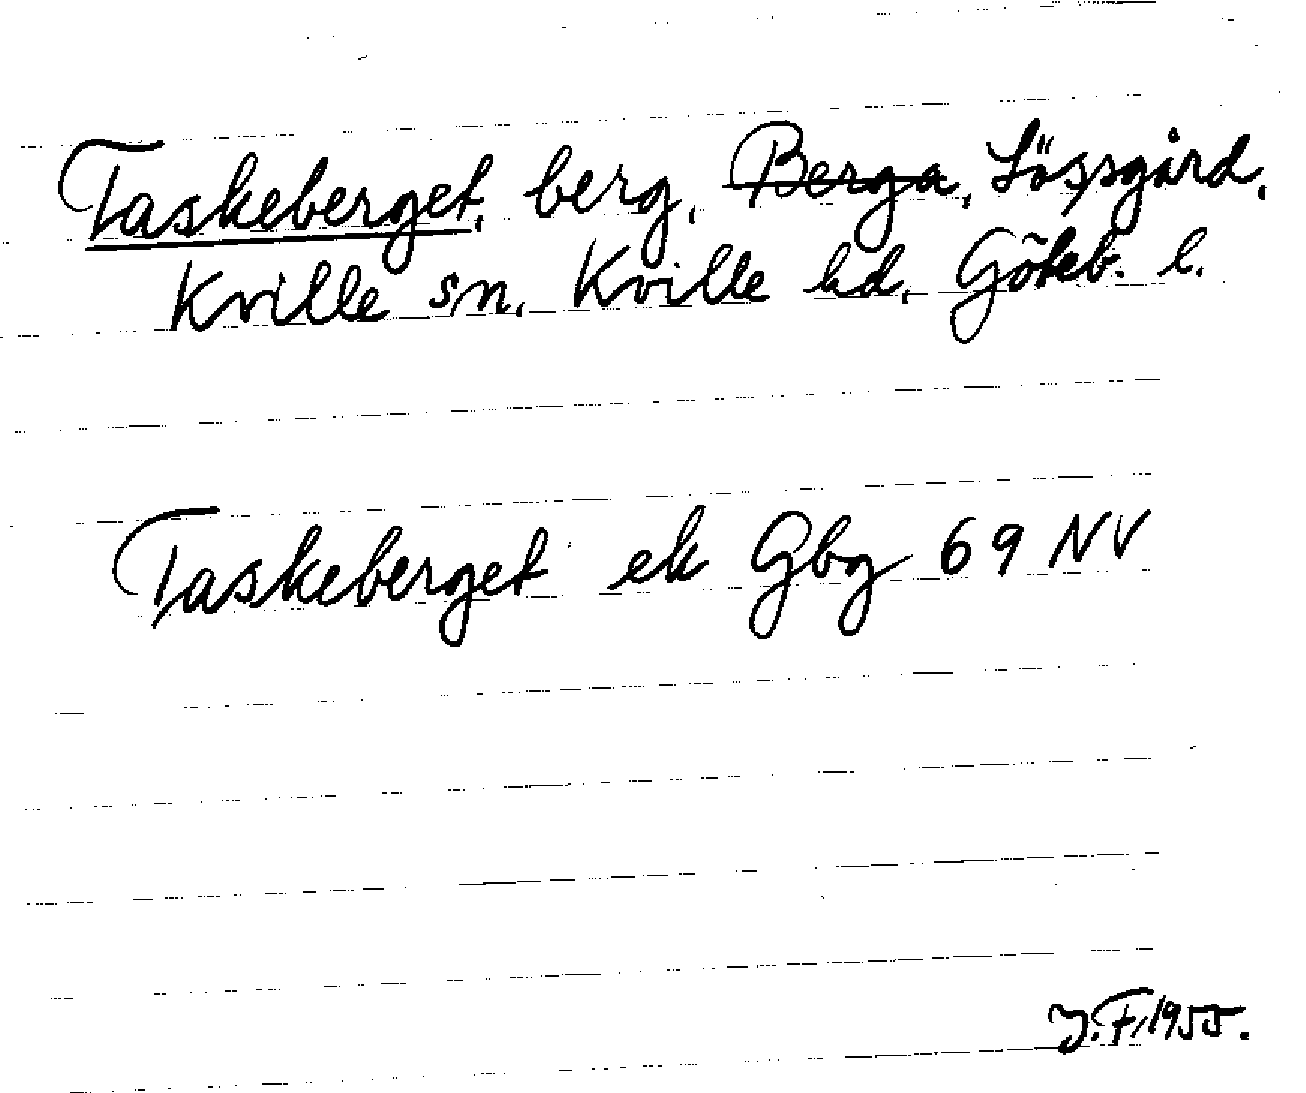 Taskeberget, berg, Berga, Lössgård,
Kville sn, Kville hd, Göteb. l.
Taskeberget ek Gbg 69 NV
J.F. 1955.